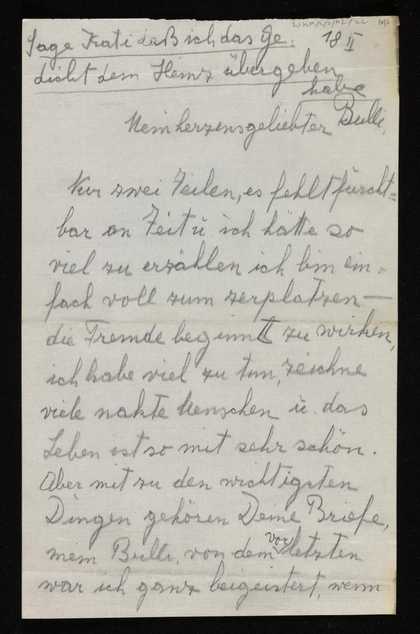 Sage Kati daß ich das Ge- 18 II
dicht dem Heinz übergeben
habe
Mein herzensgeliebter Bulli,
Nur zwei Zeilen, es fehlt furcht=
bar an Zeit u. ich hätte so
viel zu erzählen ich bin ein-
fach voll zum zerplatzen —
die Fremde beginnt zu wirken,
ich habe viel zu tun, zeichne
viele nakte Menschen u. das
Leben ist so mit sehr schön.
Aber mit zu den wichtigsten
Dingen gehören Deine Briefe,
mein Bulli, von dem vorletzten
war ich ganz beigeistert, wenn